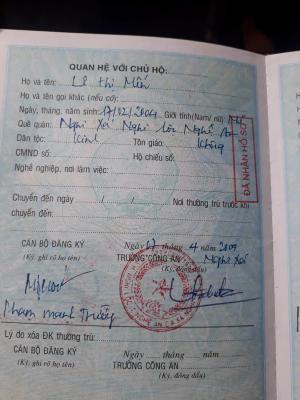 QUAN HỆ VỚI CHỦ HỘ:
Họ và tên: Lê Thị Mến
Họ và tên gọi khác (nếu có):
Ngày, tháng, năm sinh: 17/12/2004 Giới tính(Nam/ nữ):
Quê quán: Nghi Xá Nghi Lộc Nghệ An
Dân tộc: Kinh Tôn giáo: Không
CMND số: Hộ chiếu số:
Nghề nghiệp, nơi làm việc:
ĐÃ NHẬN HỒ SƠ
Chuyển đến ngày / / Nơi thường trú trước khi
chuyển đến:
Ngày tháng 4 năm 2009
CÁN BỘ ĐĂNG KÝ TRƯỞNG CÔNG AN Nghi Xá
(Ký, ghi rõ họ tên) (Ký, đóng dấu)
Phạm Mạnh Trường
Lý do xóa ĐK thường trú:
Ngày tháng năm
CÁN BỘ ĐĂNG KÝ TRƯỞNG CÔNG AN
(Ký, ghi rõ họ tên) (Ký, đóng dấu)